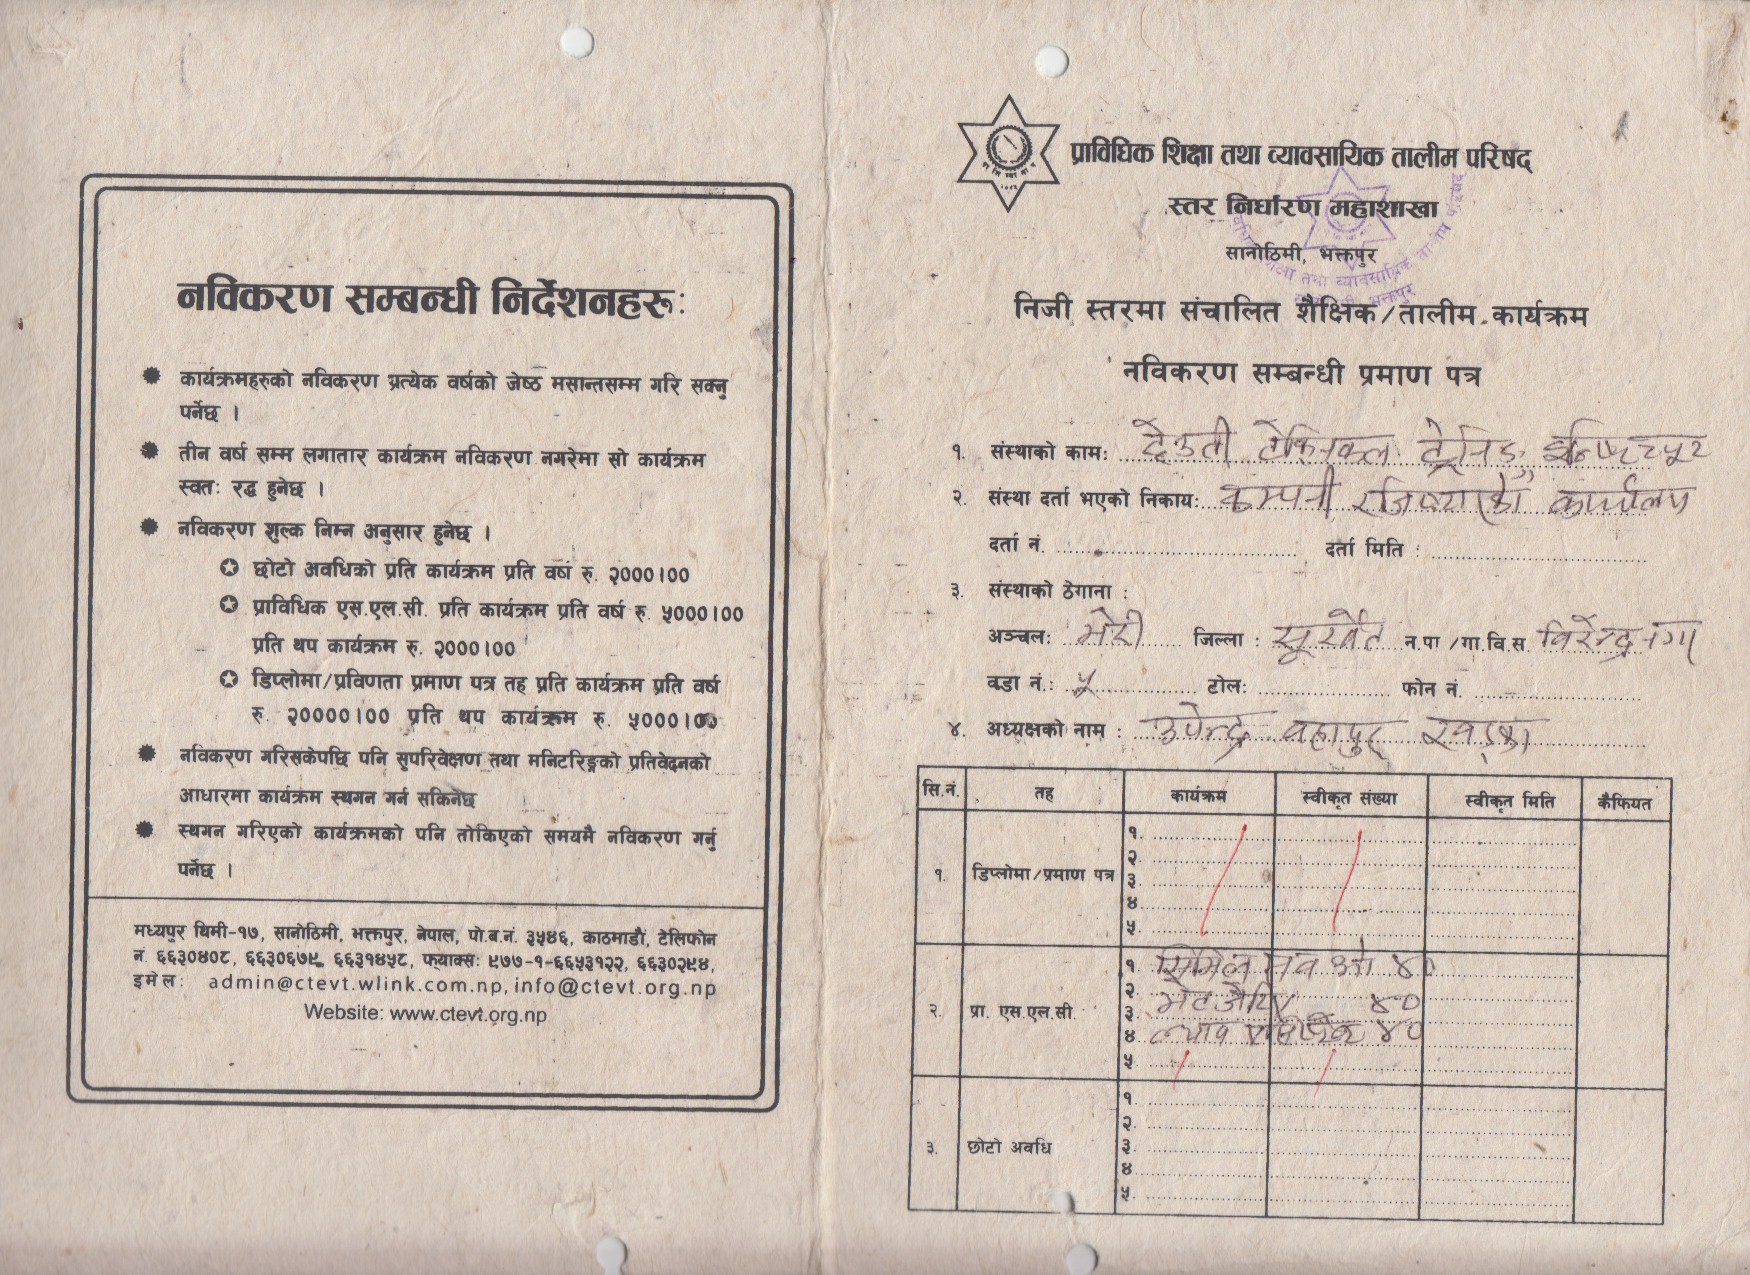 नविकरण सम्बन्धी निर्देशनहरू:
कार्यक्रमहरुको नविकरण प्रत्येक वर्षको जेष्ठ मसान्तसम्म गरि सक्नु
पर्नेछ ।
तीन वर्ष सम्म लगातार कार्यक्रम नविकरण नगरेमा सो कार्यक्रम
स्वतः रद्ध हुनेछ ।
नविकरण शुल्क निम्न अनुसार हुनेछ ।
छोटो अवधिको प्रति कार्यक्रम प्रति वर्ष रु. २०००।००
प्राविधिक एस.एल.सी. प्रति कार्यक्रम प्रति वर्ष रु. ५०००।००
प्रति थप कार्यक्रम रु. २०००।००
डिप्लोमा/प्रविणता प्रमाण पत्र तह प्रति कार्यक्रम प्रति वर्ष
रु. २००००।०० प्रति थप कार्यक्रम रु. ५०००।००
नविकरण गरिसकेपछि पनि सुपरिवेक्षण तथा मनिटरिङ्गको प्रतिवेदनको
आधारमा कार्यक्रम स्थगन गर्न सकिनेछ
स्थगन गरिएको कार्यक्रमको पनि तोकिएको समयमै नविकरण गर्नु
पर्नेछ ।
मध्यपुर थिमी-१७, सानोठिमी, भक्तपुर, नेपाल, पो.ब.नं. ३५४६, काठमाडौं, टेलिफोन
नं. ६६३०४०८, ६६३०६७९, ६६३१४५८, फ्याक्सः ९७७-१-६६५३१२२, ६६३०२९४,
इमेल: admin@ctevt.wlink.com.np, info@ctevt.org.np
Website: www.ctevt.org.np
प्राविधिक शिक्षा तथा व्यावसायिक तालीम परिषद्
स्तर निर्धारण महाशाखा
सानोठिमी, भक्तपुर
निजी स्तरमा संचालित शैक्षिक/तालीम कार्यक्रम
नविकरण सम्बन्धी प्रमाण पत्र
१. संस्थाको काम: देउती टेक्निकल ट्रेनिङ
२. संस्था दर्ता भएको निकाय: कम्पनी कार्यालय
दर्ता नं. दर्ता मिति :
३. संस्थाको ठेगाना :
अञ्चल: भेरी जिल्ला : सुर्खेत न.पा /गा.वि.स. विरेन्द्रनगर
वडा नं.: ५ टोल: फोन नं.
४. अध्यक्षको नाम : उपेन्द्र बहादुर खड्का
सि.नं. तह कार्यक्रम स्वीकृत संख्या स्वीकृत मिति कैफियत
१. डिप्लोमा/प्रमाण पत्र
१.
२
३.
४
५.
२. प्रा. एस.एल.सी.
१. सिभिल सब ओ ४०
२.
३.
४०
४ ल्याव ४०
५
३. छोटो अवधि
१
२.
३
४
५.